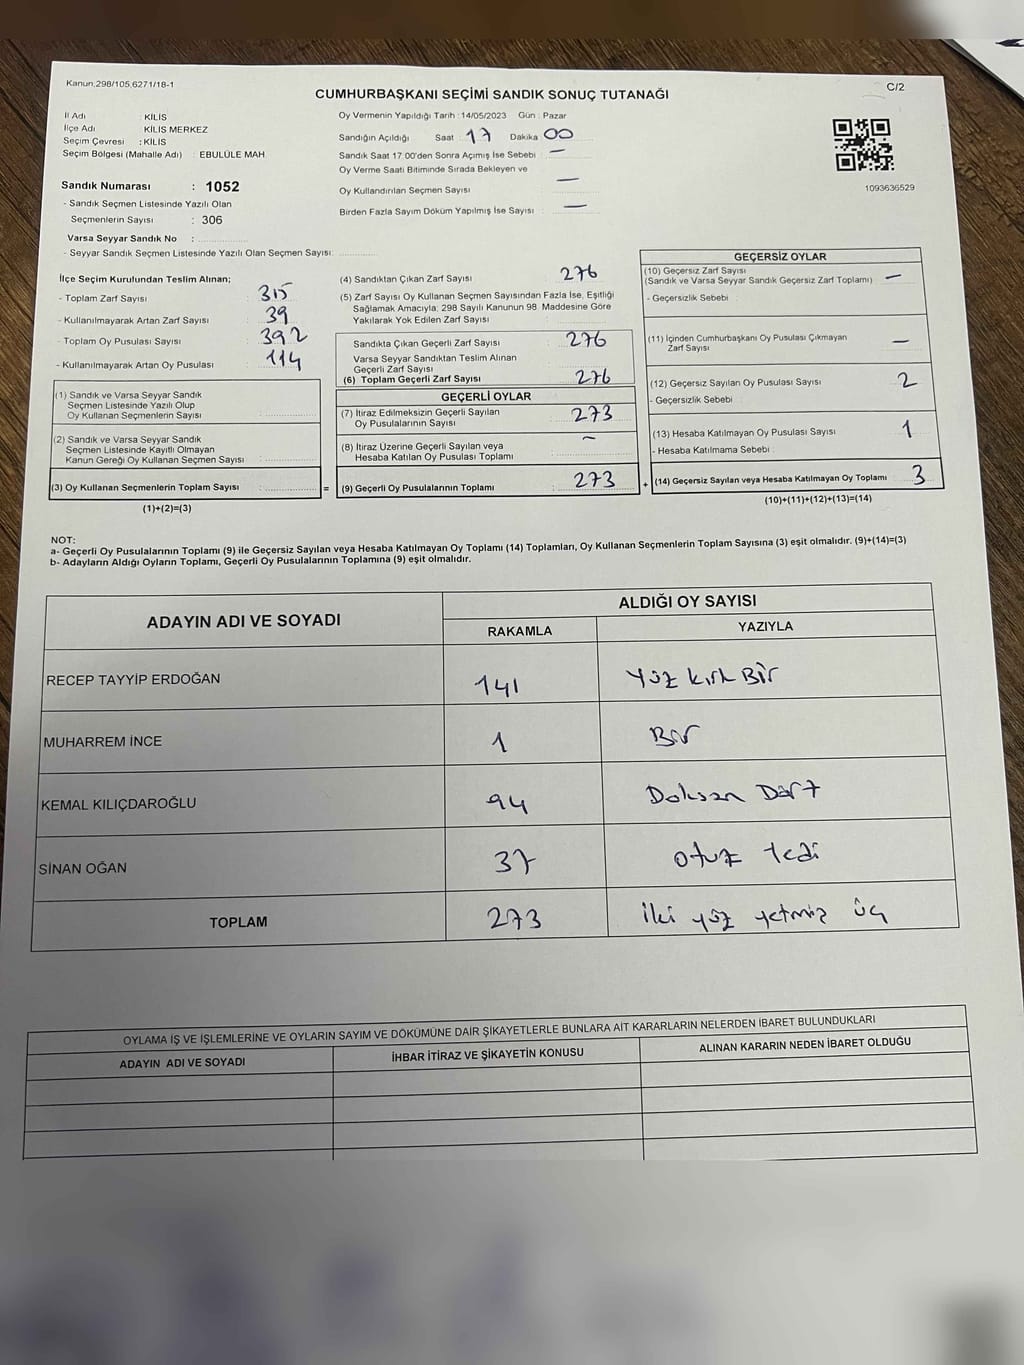 Kanun,298/105,6271/18-1
C/2
CUMHURBAŞKANI SEÇİMİ SANDIK SONUÇ TUTANAĞI
İl Adı : KİLİS
İlçe Adı : KİLİS MERKEZ
Seçim Çevresi : KİLİS
Seçim Bölgesi (Mahalle Adı) : EBULÜLE MAH
Sandık Numarası : 1052
- Sandık Seçmen Listesinde Yazılı Olan
Seçmenlerin Sayısı : 306
Varsa Seyyar Sandık No :
- Seyyar Sandık Seçmen Listesinde Yazılı Olan Seçmen Sayısı:
Oy Vermenin Yapıldığı Tarih : 14/05/2023 Gün : Pazar
Sandığın Açıldığı Saat : 17 Dakika 00
Sandık Saat 17:00'den Sonra Açımış İse Sebebi : —
Oy Verme Saati Bitiminde Sırada Bekleyen ve
Oy Kullandırılan Seçmen Sayısı —
Birden Fazla Sayım Döküm Yapılmış İse Sayısı : —
1093636529
İlçe Seçim Kurulundan Teslim Alınan;
- Toplam Zarf Sayısı : 315
- Kullanılmayarak Artan Zarf Sayısı : 39
- Toplam Oy Pusulası Sayısı : 392
- Kullanılmayarak Artan Oy Pusulası : 114
(1) Sandık ve Varsa Seyyar Sandık
Seçmen Listesinde Yazılı Olup
Oy Kullanan Seçmenlerin Sayısı :
(2) Sandık ve Varsa Seyyar Sandık
Seçmen Listesinde Kayıtlı Olmayan
Kanun Gereği Oy Kullanan Seçmen Sayısı :
(3) Oy Kullanan Seçmenlerin Toplam Sayısı : =
(1)+(2)=(3)
(4) Sandıktan Çıkan Zarf Sayısı : 276
(5) Zarf Sayısı Oy Kullanan Seçmen Sayısından Fazla İse, Eşitliği
Sağlamak Amacıyla; 298 Sayılı Kanunun 98. Maddesine Göre
Yakılarak Yok Edilen Zarf Sayısı :
Sandıkta Çıkan Geçerli Zarf Sayısı : 276
Varsa Seyyar Sandıktan Teslim Alınan
Geçerli Zarf Sayısı :
(6) Toplam Geçerli Zarf Sayısı : 276
GEÇERLİ OYLAR
(7) İtiraz Edilmeksizin Geçerli Sayılan
Oy Pusulalarının Sayısı : 273
(8) İtiraz Üzerine Geçerli Sayılan veya
Hesaba Katılan Oy Pusulası Toplamı : —
(9) Geçerli Oy Pusulalarının Toplamı : 273 +
GEÇERSİZ OYLAR
(10) Geçersiz Zarf Sayısı
(Sandık ve Varsa Seyyar Sandık Geçersiz Zarf Toplamı) : —
- Geçersizlik Sebebi :
(11) İçinden Cumhurbaşkanı Oy Pusulası Çıkmayan
Zarf Sayısı : —
(12) Geçersiz Sayılan Oy Pusulası Sayısı : 2
- Geçersizlik Sebebi :
(13) Hesaba Katılmayan Oy Pusulası Sayısı : 1
- Hesaba Katılmama Sebebi :
(14) Geçersiz Sayılan veya Hesaba Katılmayan Oy Toplamı : 3
(10)+(11)+(12)+(13)=(14)
NOT:
a- Geçerli Oy Pusulalarının Toplamı (9) ile Geçersiz Sayılan veya Hesaba Katılmayan Oy Toplamı (14) Toplamları, Oy Kullanan Seçmenlerin Toplam Sayısına (3) eşit olmalıdır. (9)+(14)=(3)
b- Adayların Aldığı Oyların Toplamı, Geçerli Oy Pusulalarının Toplamına (9) eşit olmalıdır.
ADAYIN ADI VE SOYADI ALDIĞI OY SAYISI
RAKAMLA YAZIYLA
RECEP TAYYİP ERDOĞAN 141 Yüz kırk Bir
MUHARREM İNCE 1 Bir
KEMAL KILIÇDAROĞLU 94 Doksan Dört
SİNAN OĞAN 37 Otuz Yedi
TOPLAM 273 İki yüz yetmiş üç
OYLAMA İŞ VE İŞLEMLERİNE VE OYLARIN SAYIM VE DÖKÜMÜNE DAİR ŞİKAYETLERLE BUNLARA AİT KARARLARIN NELERDEN İBARET BULUNDUKLARI
ADAYIN ADI VE SOYADI İHBAR İTİRAZ VE ŞİKAYETİN KONUSU ALINAN KARARIN NEDEN İBARET OLDUĞU